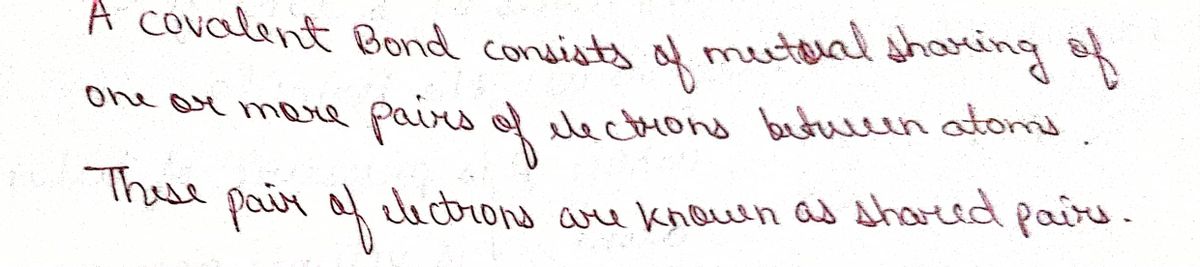 A covalent Bond consists of mutual sharing of
one or more pairs of electrons between atoms.
These pair of electrons are known as shared pairs.